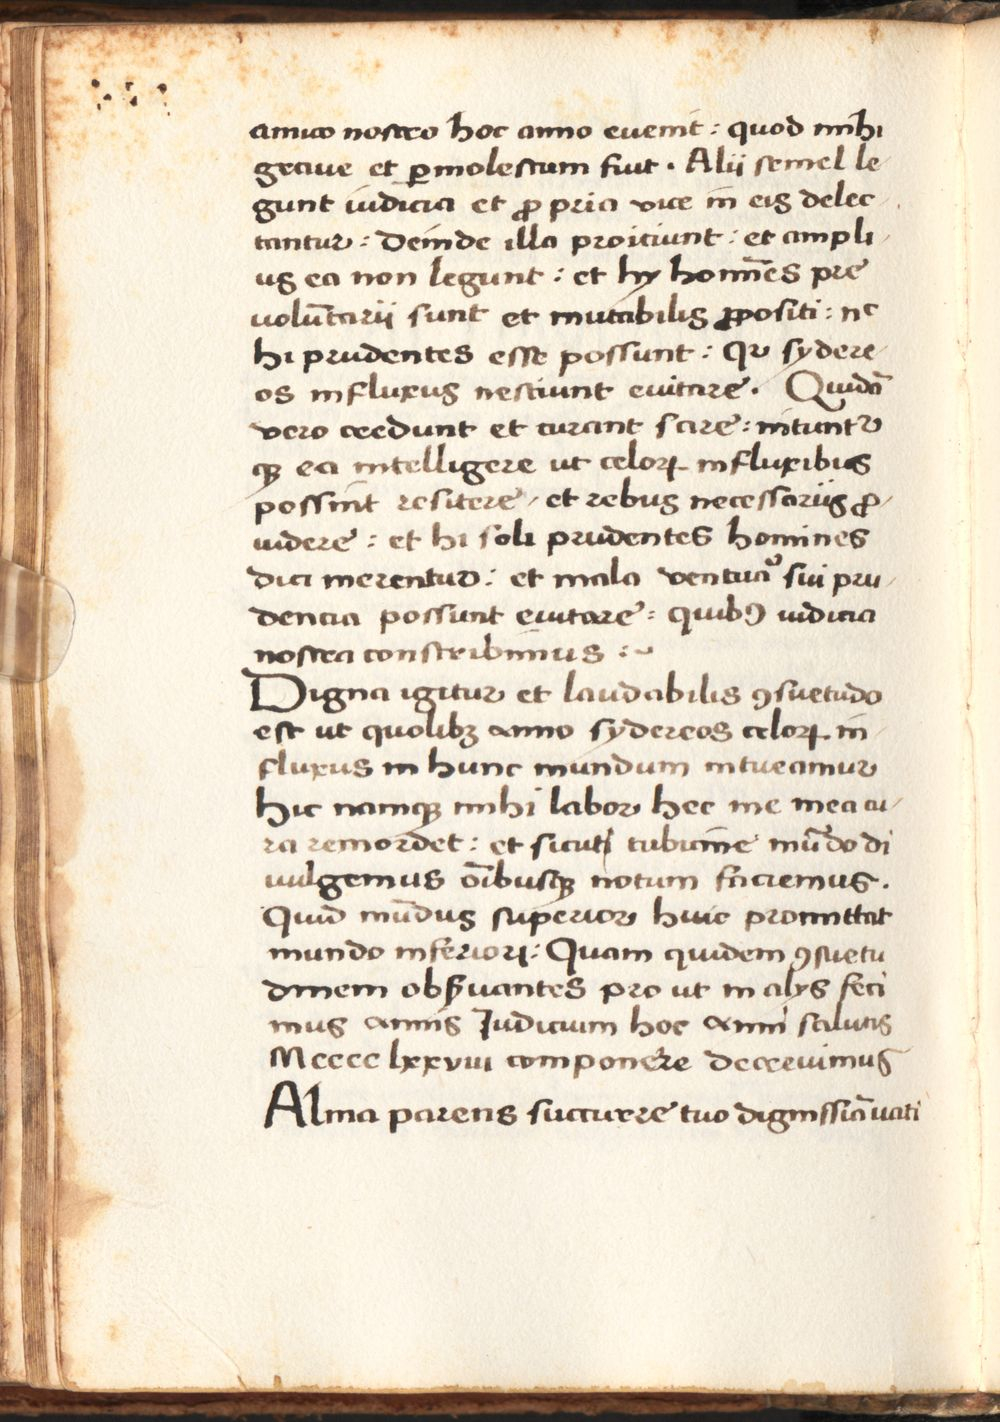 amico nostro hoc anno evenit : quod mihi
grave et ꝑmolestum fuit . Alii semel le
gunt iudicia et ꝓpria vice in eis delec
tantur : Deinde illa proiciunt : et ampli
us ea non legunt : et hy homīes pre
volūtarii sunt et mutabilis ꝓpositi : nc
hi prudentes esse possunt : Qꝛ sydere
os influxus nesciunt evitare . Quidā
vero credunt et curant scire : nitunt᷑
qꝫ ea intelligere ut celoꝝ influxibus
possint resitere / et rebus necessariis ꝓ
videre : et hi soli prudentes homines
dici merentur : et mala ventura sui pru
dencia possunt evitare : quibꝰ iudicia
nostra conscribimus : ~
Digna igitur et laudabilis ꝯsuetudo
est ut quolibꝫ anno sydereos celoꝝ in
fluxus in hunc mundum intueamur
hic namqꝫ mihi labor hec me mea cu
ra remordet : et sicuti tubicine mūdo di
vulgemus oībusqꝫ notum faciemus .
Quid mūdus superior huic promittat
mundo inferiori : Quam quidem ꝯsuetu
dinem obẜvantes pro ut in alys feci
mus annis Iudicium hoc anni salutis
Mcccc lxxviii componere decrevimus
Alma parens succurre tuo dignissīā vati